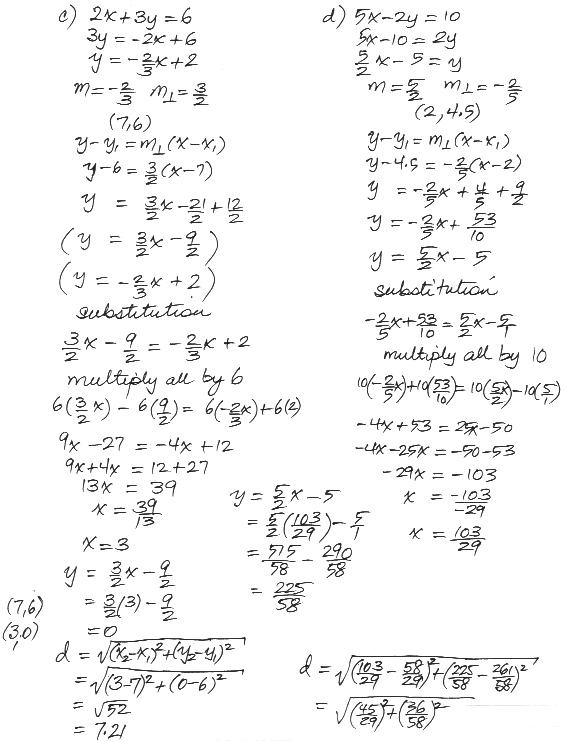 c) 2x+3y=6
3y=-2x+6
y=-2/3x+2
m=-2/3 m⊥=3/2
(7,6)
y-y₁=m⊥(x-x₁)
y-6=3/2(x-7)
y = 3/2x-21/2+12/2
(y = 3/2x-9/2)
(y = -2/3x+2)
substitution
3/2x-9/2=-2/3x+2
multiply all by 6
6(3/2x)-6(9/2)=6(-2/3x)+6(2)
9x-27=-4x+12
9x+4x=12+27
13x=39
x=39/13
x=3
y=3/2x-9/2
=3/2(3)-9/2
=0
(7,6)
(3,0)
d=√(x₂-x₁)²+(y₂-y₁)²
=√(3-7)²+(0-6)²
=√52
=7.21
d) 5x-2y=10
5x-10=2y
5/2x-5=y
m=5/2 m⊥=-2/5
(2,4.5)
y-y₁=m⊥(x-x₁)
y-4.5=-2/5(x-2)
y =-2/5x+4/5+9/2
y=-2/5x+53/10
y=5/2x-5
substitution
-2/5x+53/10=5/2x-5/1
multiply all by 10
10(-2/5x)+10(53/10)=10(5x/2)-10(5/1)
-4x+53=25x-50
-4x-25x=-50-53
-29x=-103
x=-103/-29
x=103/29
y=5/2x-5
=5/2(103/29)-5/1
=515/58-290/58
=225/58
d=√(103/29-58/29)²+(225/58-261/58)²
=√(45/29)²+(36/58)²